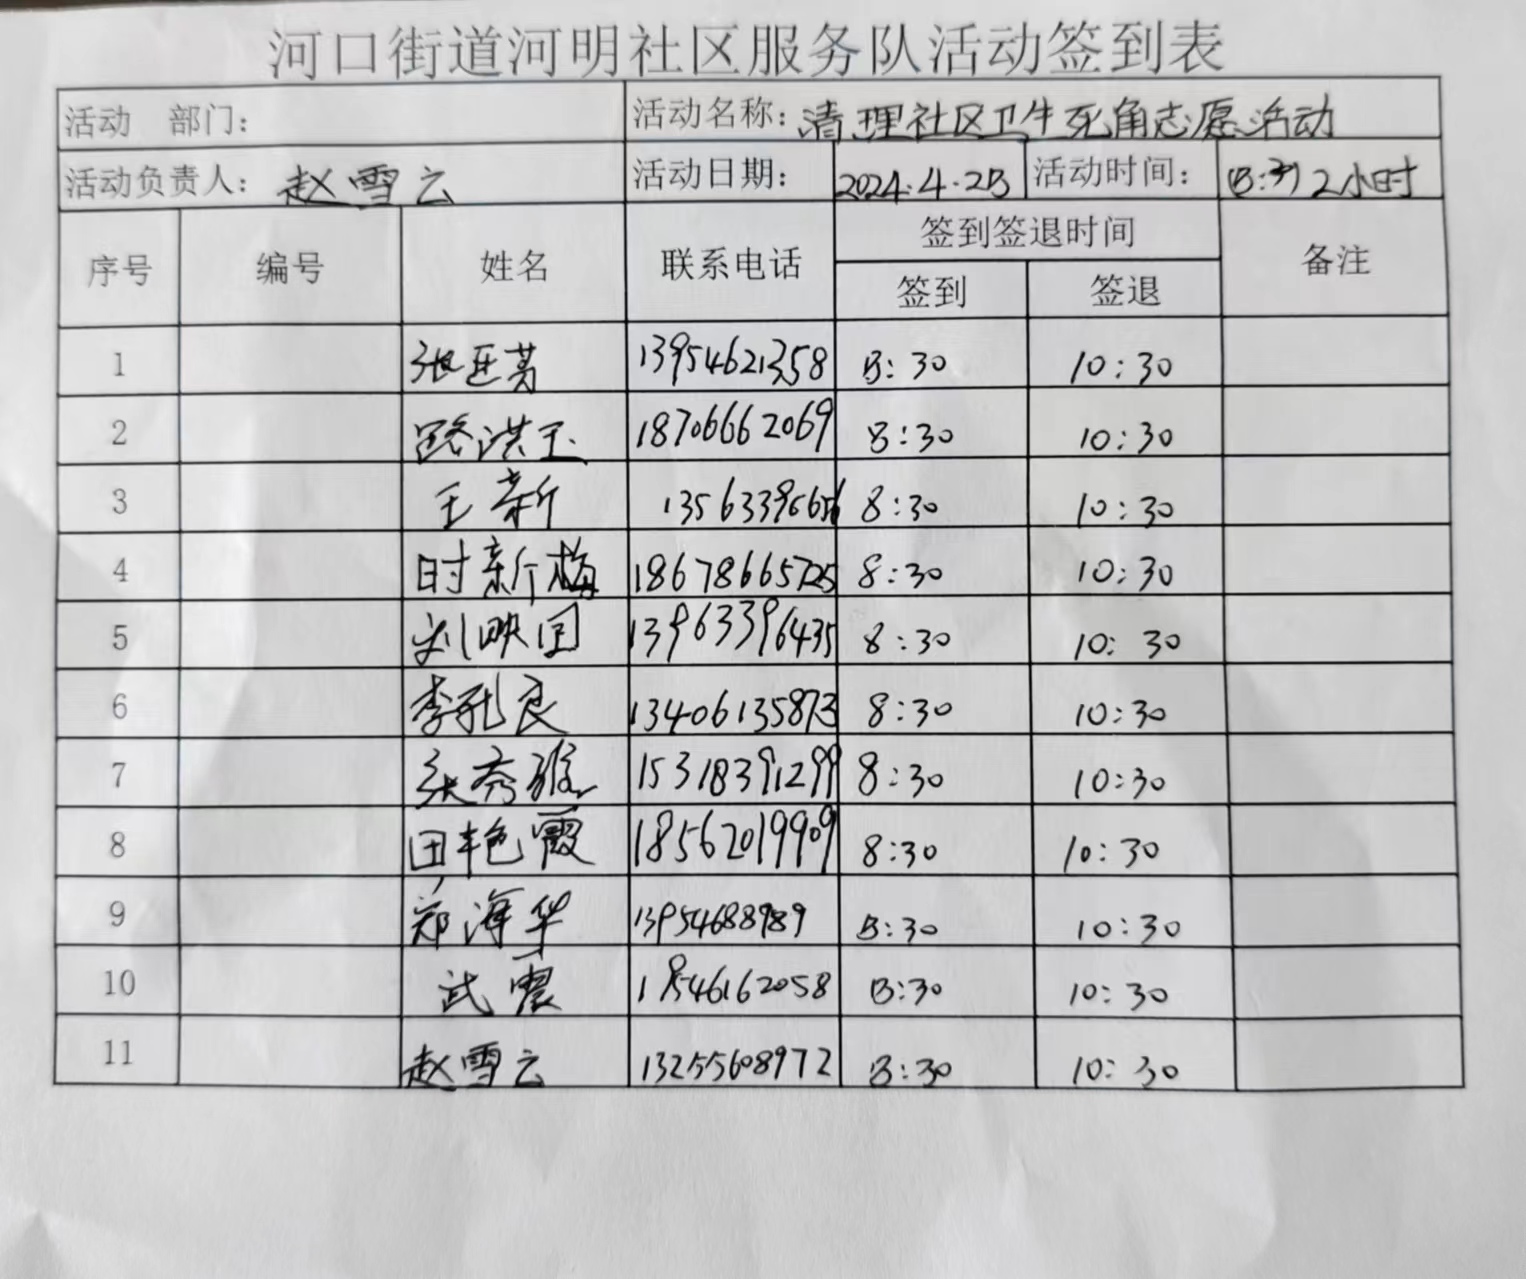 河口街道河明社区服务队活动签到表
活动 部门： 活动名称：清理社区卫生死角志愿活动
活动负责人：赵雪云 活动日期： 2024.4.28 活动时间： 2小时
序号 编号 姓名 联系电话 签到签退时间 备注
签到 签退
1 13954621358 8:30 10:30
2 路洪玉 18706662069 8:30 10:30
3 王新 8:30 10:30
4 时新梅 18678665725 8:30 10:30
5 13963396435 8:30 10:30
6 13406135873 8:30 10:30
7 15318391299 8:30 10:30
8 田艳霞 18562019909 8:30 10:30
9 郑海华 13954688989 8:30 10:30
10 武震 8:30 10:30
11 赵雪云 13255608972 8:30 10:30